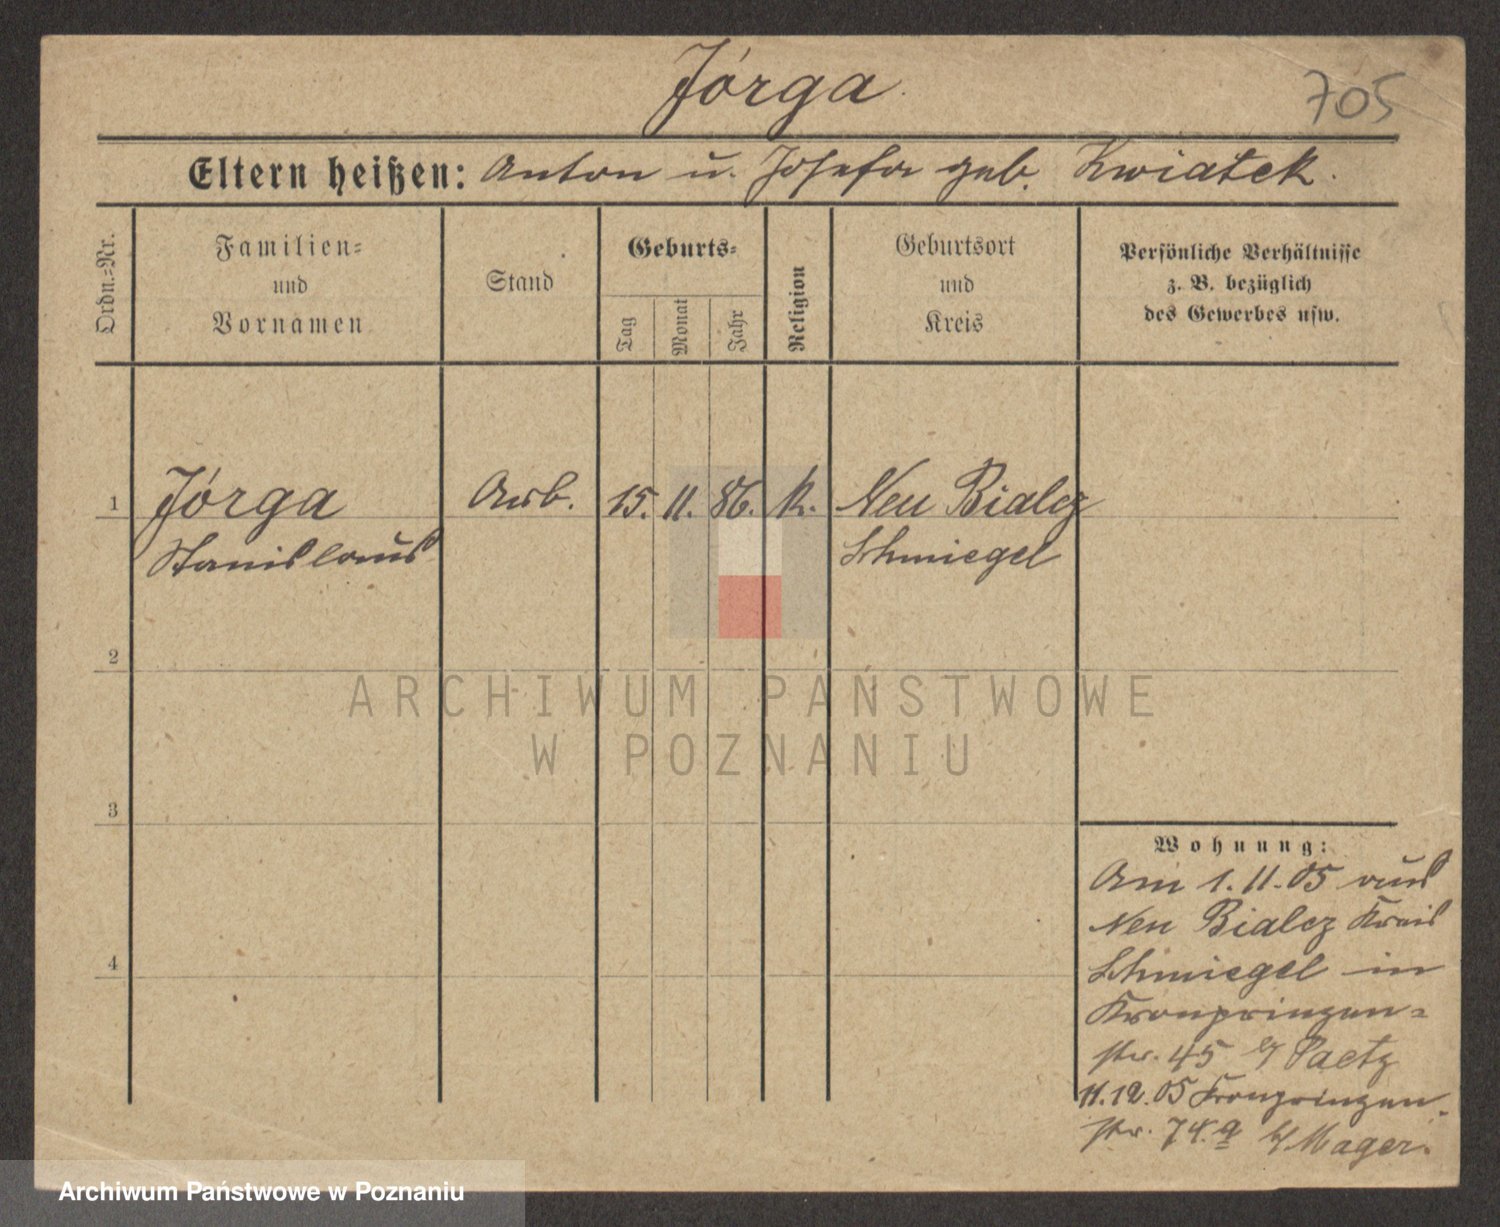 Jórga.
705
Eltern heißen: Anton u. Josefa geb. Kwiatek.
Ordn.=Nr.
Familien=
und
Vornamen
Stand
Geburts=
Tag
Monat
Jahr
Religion
Geburtsort
und
Kreis
Persönliche Verhältnisse
z. B. bezüglich
des Gewerbes usw.
1 Jórga Arb. 15. 11. 86. k. Neu Bialcz
Stanislaus Schmiegel
2
ARCHIWUM PAŃSTWOWE
W POZNANIU
3
Wohnung:
Am 1.11.05 aus
Neu Bialcz Kreis
Schmiegel in
Kronprinzen=
str. 45 b/ Paetz
4
11.12.05 Kronprinzen-
str. 74.a b/ Mager.
Archiwum Państwowe w Poznaniu